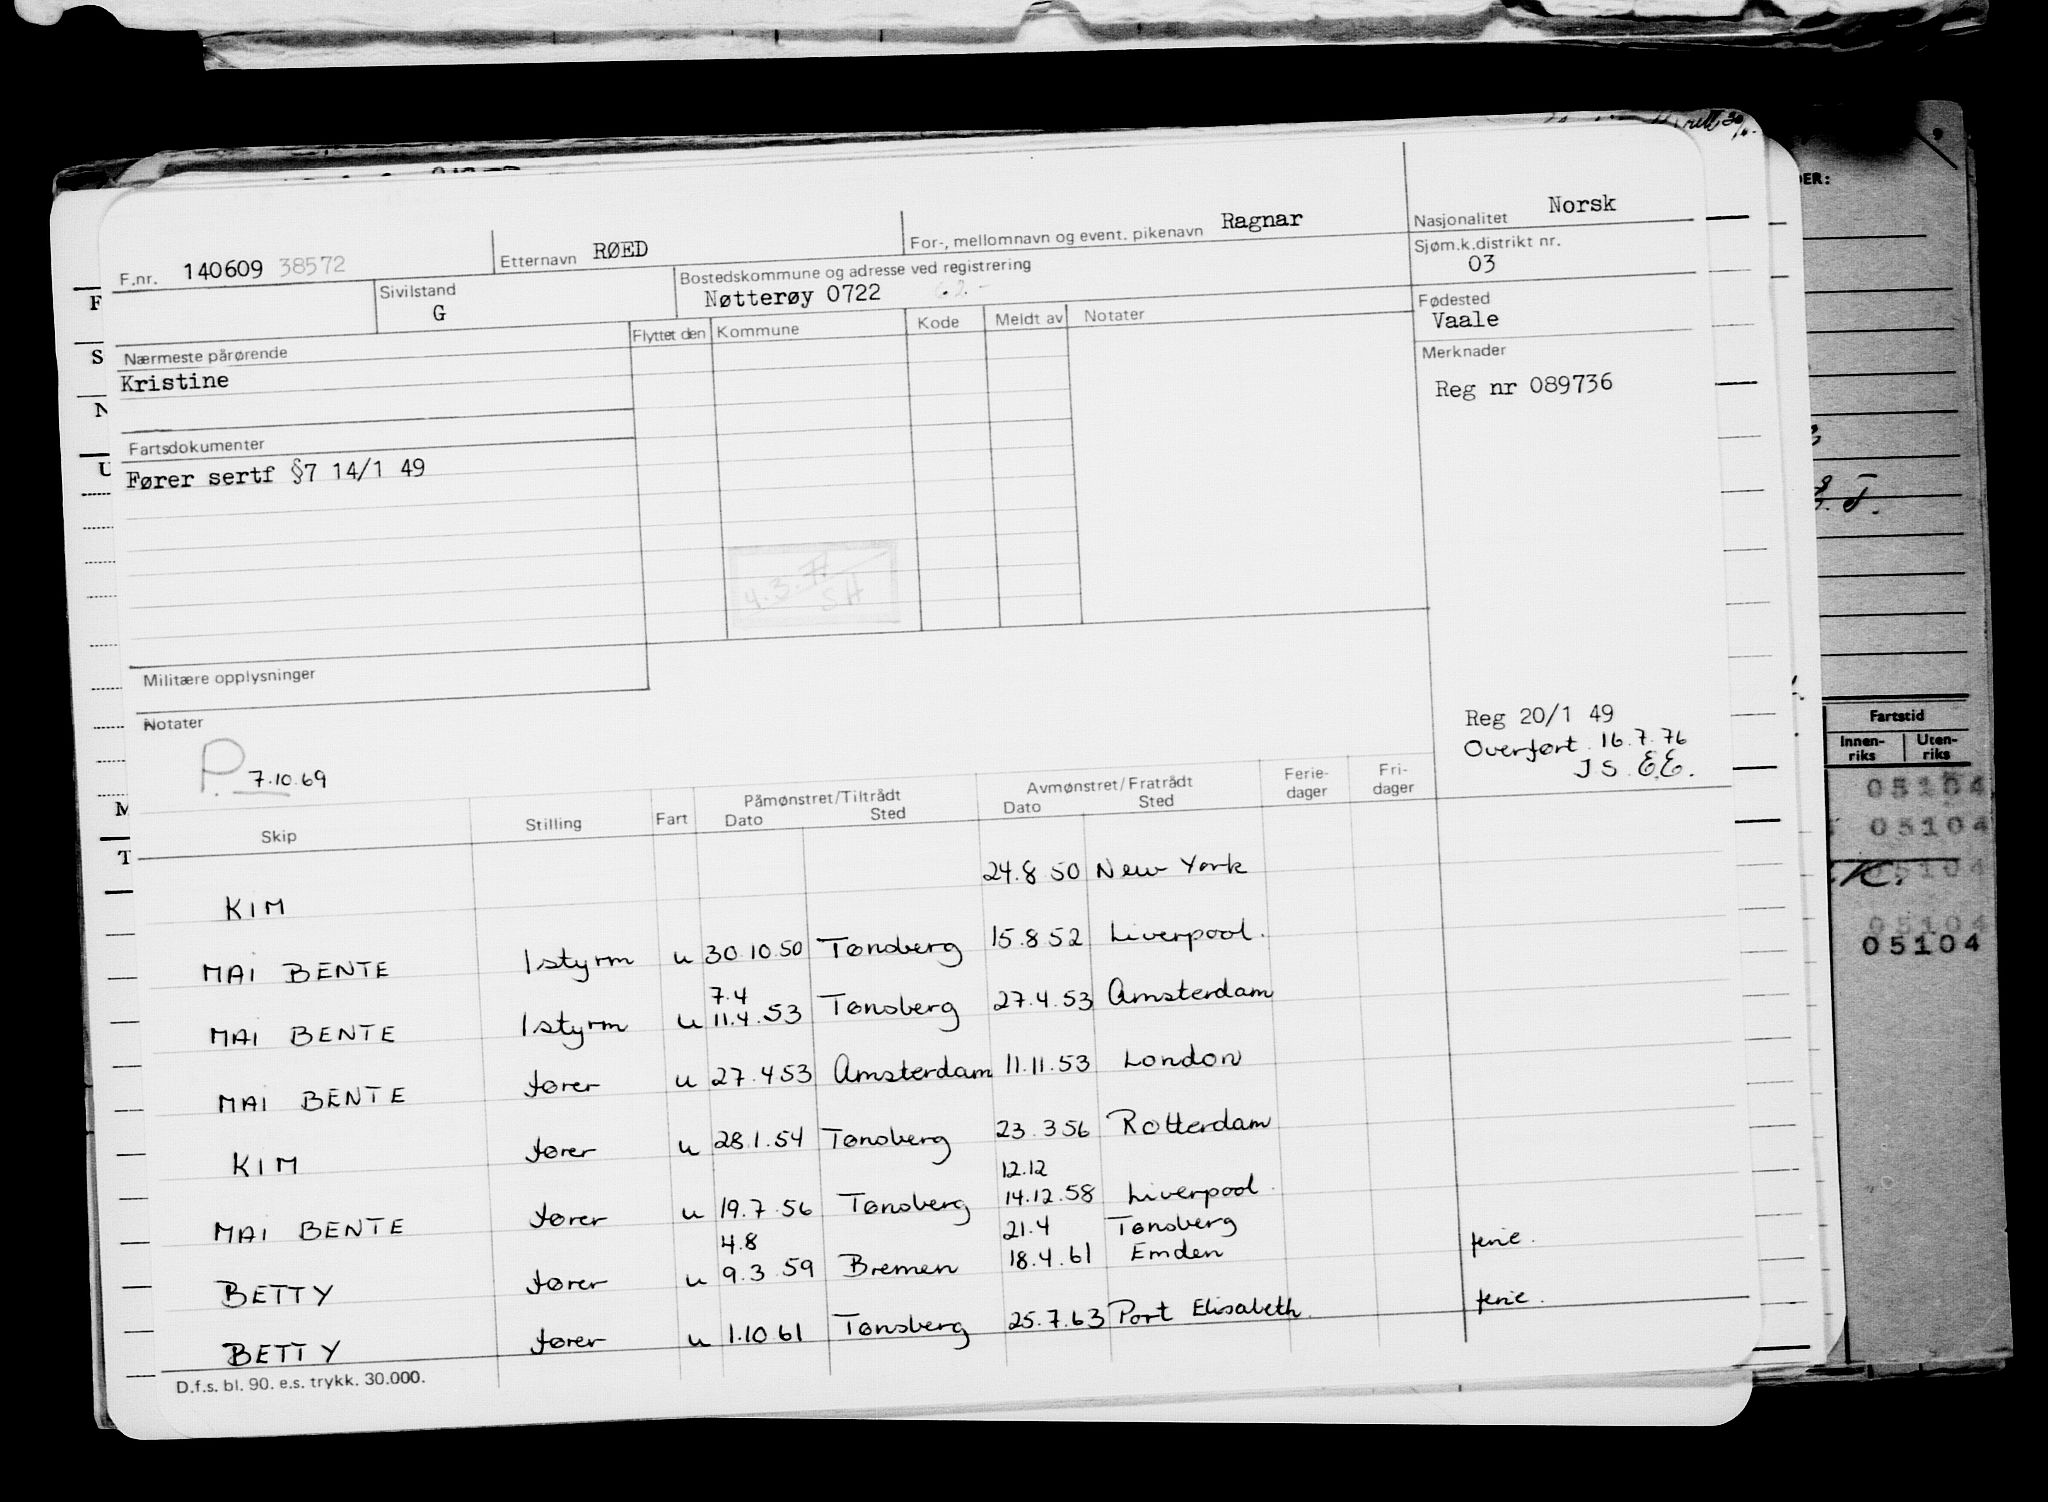 F.nr. 140609 38572
Etternavn RØED
For-, mellomnavn og event. pikenavn Ragnar
Nasjonalitet Norsk
Sjøm.k.distrikt nr.
03
Sivilstand
G
Bostedskommune og adresse ved registrering
Nøtterøy 0722
Fødested
Vaale
Nærmeste pårørende
Kristine
Flyttet den Kommune Kode Meldt av Notater
Merknader
Reg nr 089736
Fartsdokumenter
Fører sertf §7 14/1 49
4.3.77
SH
Militære opplysninger
Notater
P. 7.10.69
Reg 20/1 49
Overført 16.7.76
J.S. E.E.
Skip Stilling Fart Påmønstret/Tiltrådt Dato Sted Avmønstret/Fratrådt Dato Sted Ferie-dager Fri-dager
KIM 24.8 50 New York
MAI BENTE 1styrm u 30.10.50 Tønsberg 15.8.52 Liverpool.
7.4
MAI BENTE 1styrm u 11.4.53 Tønsberg 27.4.53 Amsterdam
MAI BENTE fører u 27.4.53 Amsterdam 11.11.53 London
KIM fører u 28.1.54 Tønsberg 23.3.56 Rotterdam
12.12
MAI BENTE fører u 19.7.56 Tønsberg 14.12.58 Liverpool
4.8 21.4 Tønsberg
BETTY fører u 9.3.59 Bremen 18.4.61 Emden ferie.
BETTY fører u 1.10.61 Tønsberg 25.7.63 Port Elisabeth. ferie.
D.f.s. bl. 90. e.s. trykk. 30.000.
DER:
F
S
N
U
M
T
Fartstid
Innen-riks Uten-riks
05104
05104
05104
05104
05104